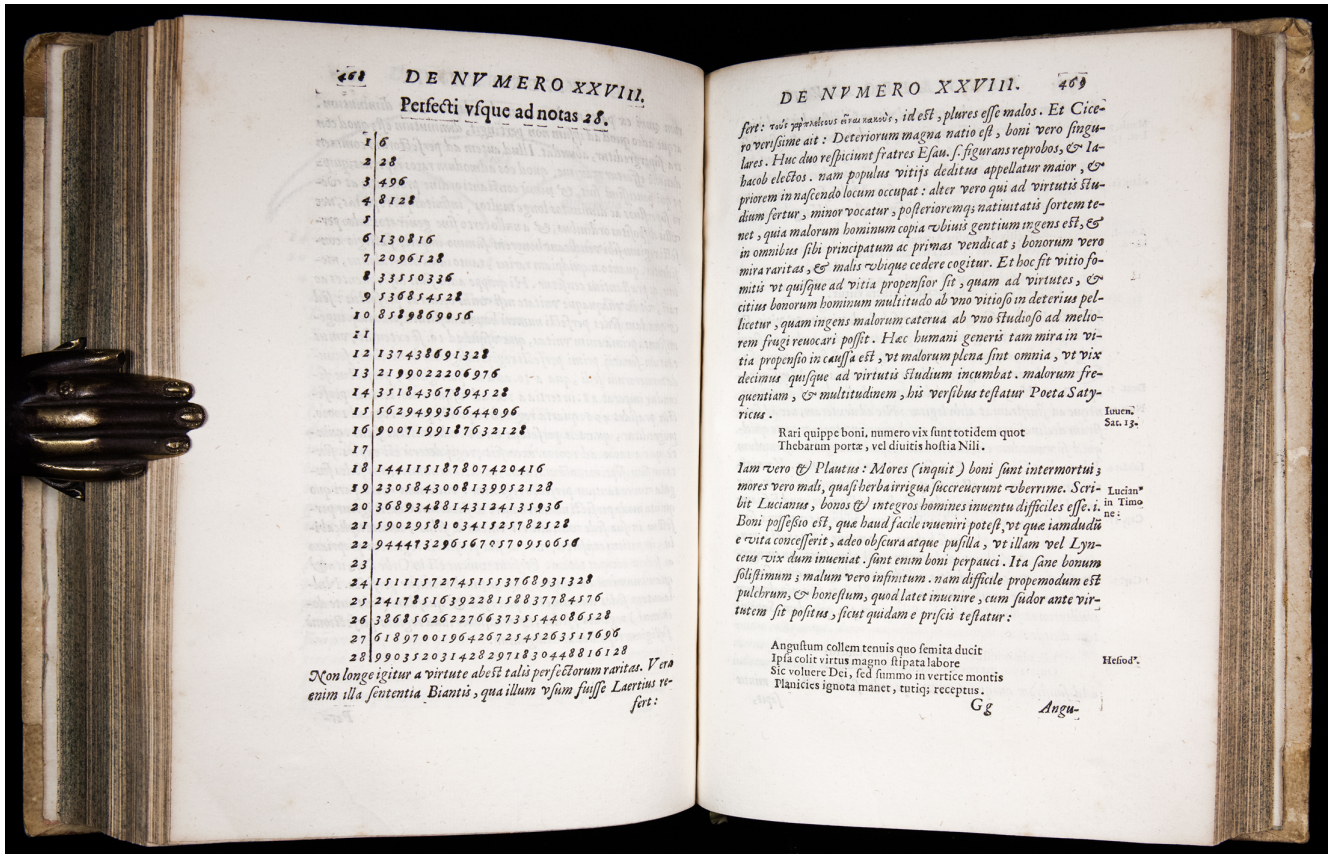 468 DE NVMERO XXVIII.
Perfecti vsque ad notas 28.
1 6
2 28
3 496
4 8128
5
6 130816
7 2096128
8 33550336
9 536854528
10 8589869056
11
12 137438691328
13 2199022206976
14 35184367894528
15 562949936644096
16 9007199187632128
17
18 144115187807420416
19 2305843008139952128
20 36893488143124135936
21 590295810341525782528
22 9444732965670570950656
23
24 151115727451553768931328
25 2417851639228158837784576
26 38685626227663735544086528
27 618970019642672545263517696
28 9903520314282971830448816128
Non longe igitur a virtute abest talis perfectorum raritas. Vera
enim illa sententia Biantis, qua illum vsum fuisse Laertius re-
fert:
DE NVMERO XXVIII. 469
fert: τους εἶναι κακους, id est, plures esse malos. Et Cice-
ro verissime ait: Deteriorum magna natio est, boni vero singu-
lares. Huc duo respiciunt fratres Esau. s. figurans reprobos, & Ia-
hacob electos. nam populus vitijs deditus appellatur maior, &
priorem in nascendo locum occupat: alter vero qui ad virtutis stu-
dium fertur, minor vocatur, posterioremq; natiuitatis sortem te-
net, quia malorum hominum copia vbiuis gentium ingens est, &
in omnibus sibi principatum ac primas vendicat; bonorum vero
mira raritas, & malis vbique cedere cogitur. Et hoc fit vitio fo-
mitis vt quisque ad vitia propensior sit, quam ad virtutes, &
citius bonorum hominum multitudo ab vno vitioso in deterius pel-
licetur, quam ingens malorum caterua ab vno studioso ad melio-
rem frugi reuocari possit. Hæc humani generis tam mira in vi-
tia propensio in caussa est, vt malorum plena sint omnia, vt vix
decimus quisque ad virtutis studium incumbat. malorum fre-
quentiam, & multitudinem, his versibus testatur Poeta Saty-
ricus.
Iuuen.
Sat. 13.
Rari quippe boni, numero vix sunt totidem quot
Thebarum portæ, vel diuitis hostia Nili.
Iam vero & Plautus: Mores (inquit) boni sunt intermortui;
mores vero mali, quasi herba irrigua succreuerunt vberrime. Scri-
bit Lucianus, bonos & integros homines inuentu difficiles esse. i.
Boni possessio est, quæ haud facile inueniri potest, vt quæ iamdudū
e vita concesserit, adeo obscura atque pusilla, vt illam vel Lyn-
ceus vix dum inueniat. sunt enim boni perpauci. Ita sane bonum
solistimum; malum vero infinitum. nam difficile propemodum est
pulchrum, & honestum, quod latet inuenire, cum sudor ante vir-
tutem sit positus, sicut quidam e priscis testatur:
Lucian⁹
in Timo
ne:
Angustum collem tenuis quo semita ducit
Ipsa colit virtus magno stipata labore
Sic voluere Dei, sed summo in vertice montis
Planicies ignota manet, tutiq; receptus.
Hesiod⁹.
Gg Angu-